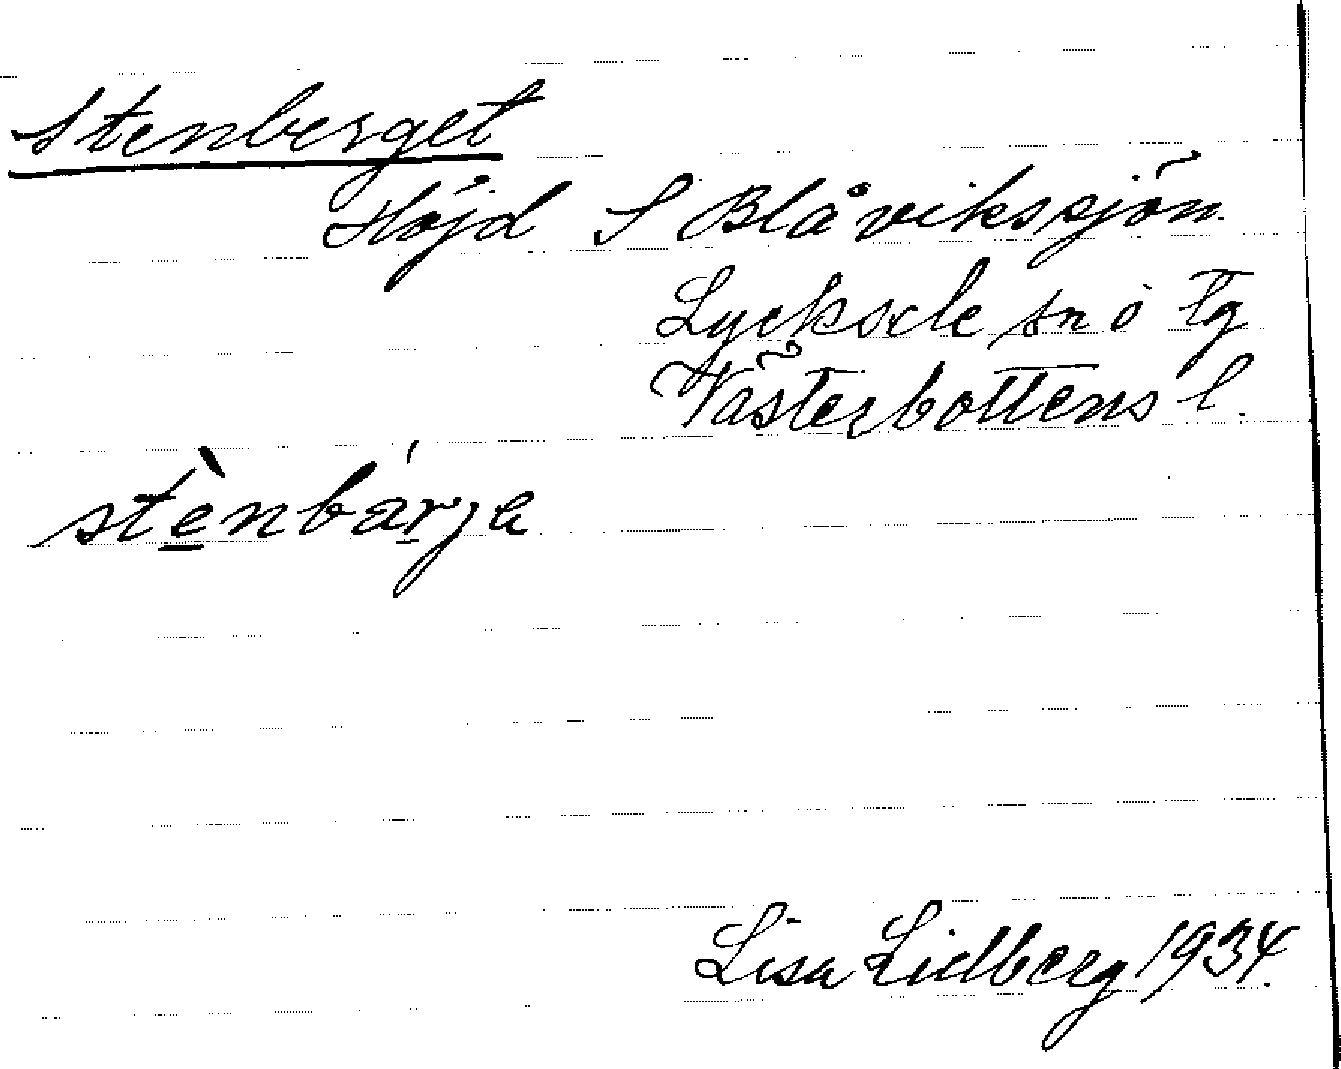 Stenberget
Höjd S Blåvikssjön.
Lycksele sn o tg
Västerbottens l.
stènbárja
Lisa Lidberg 1934.